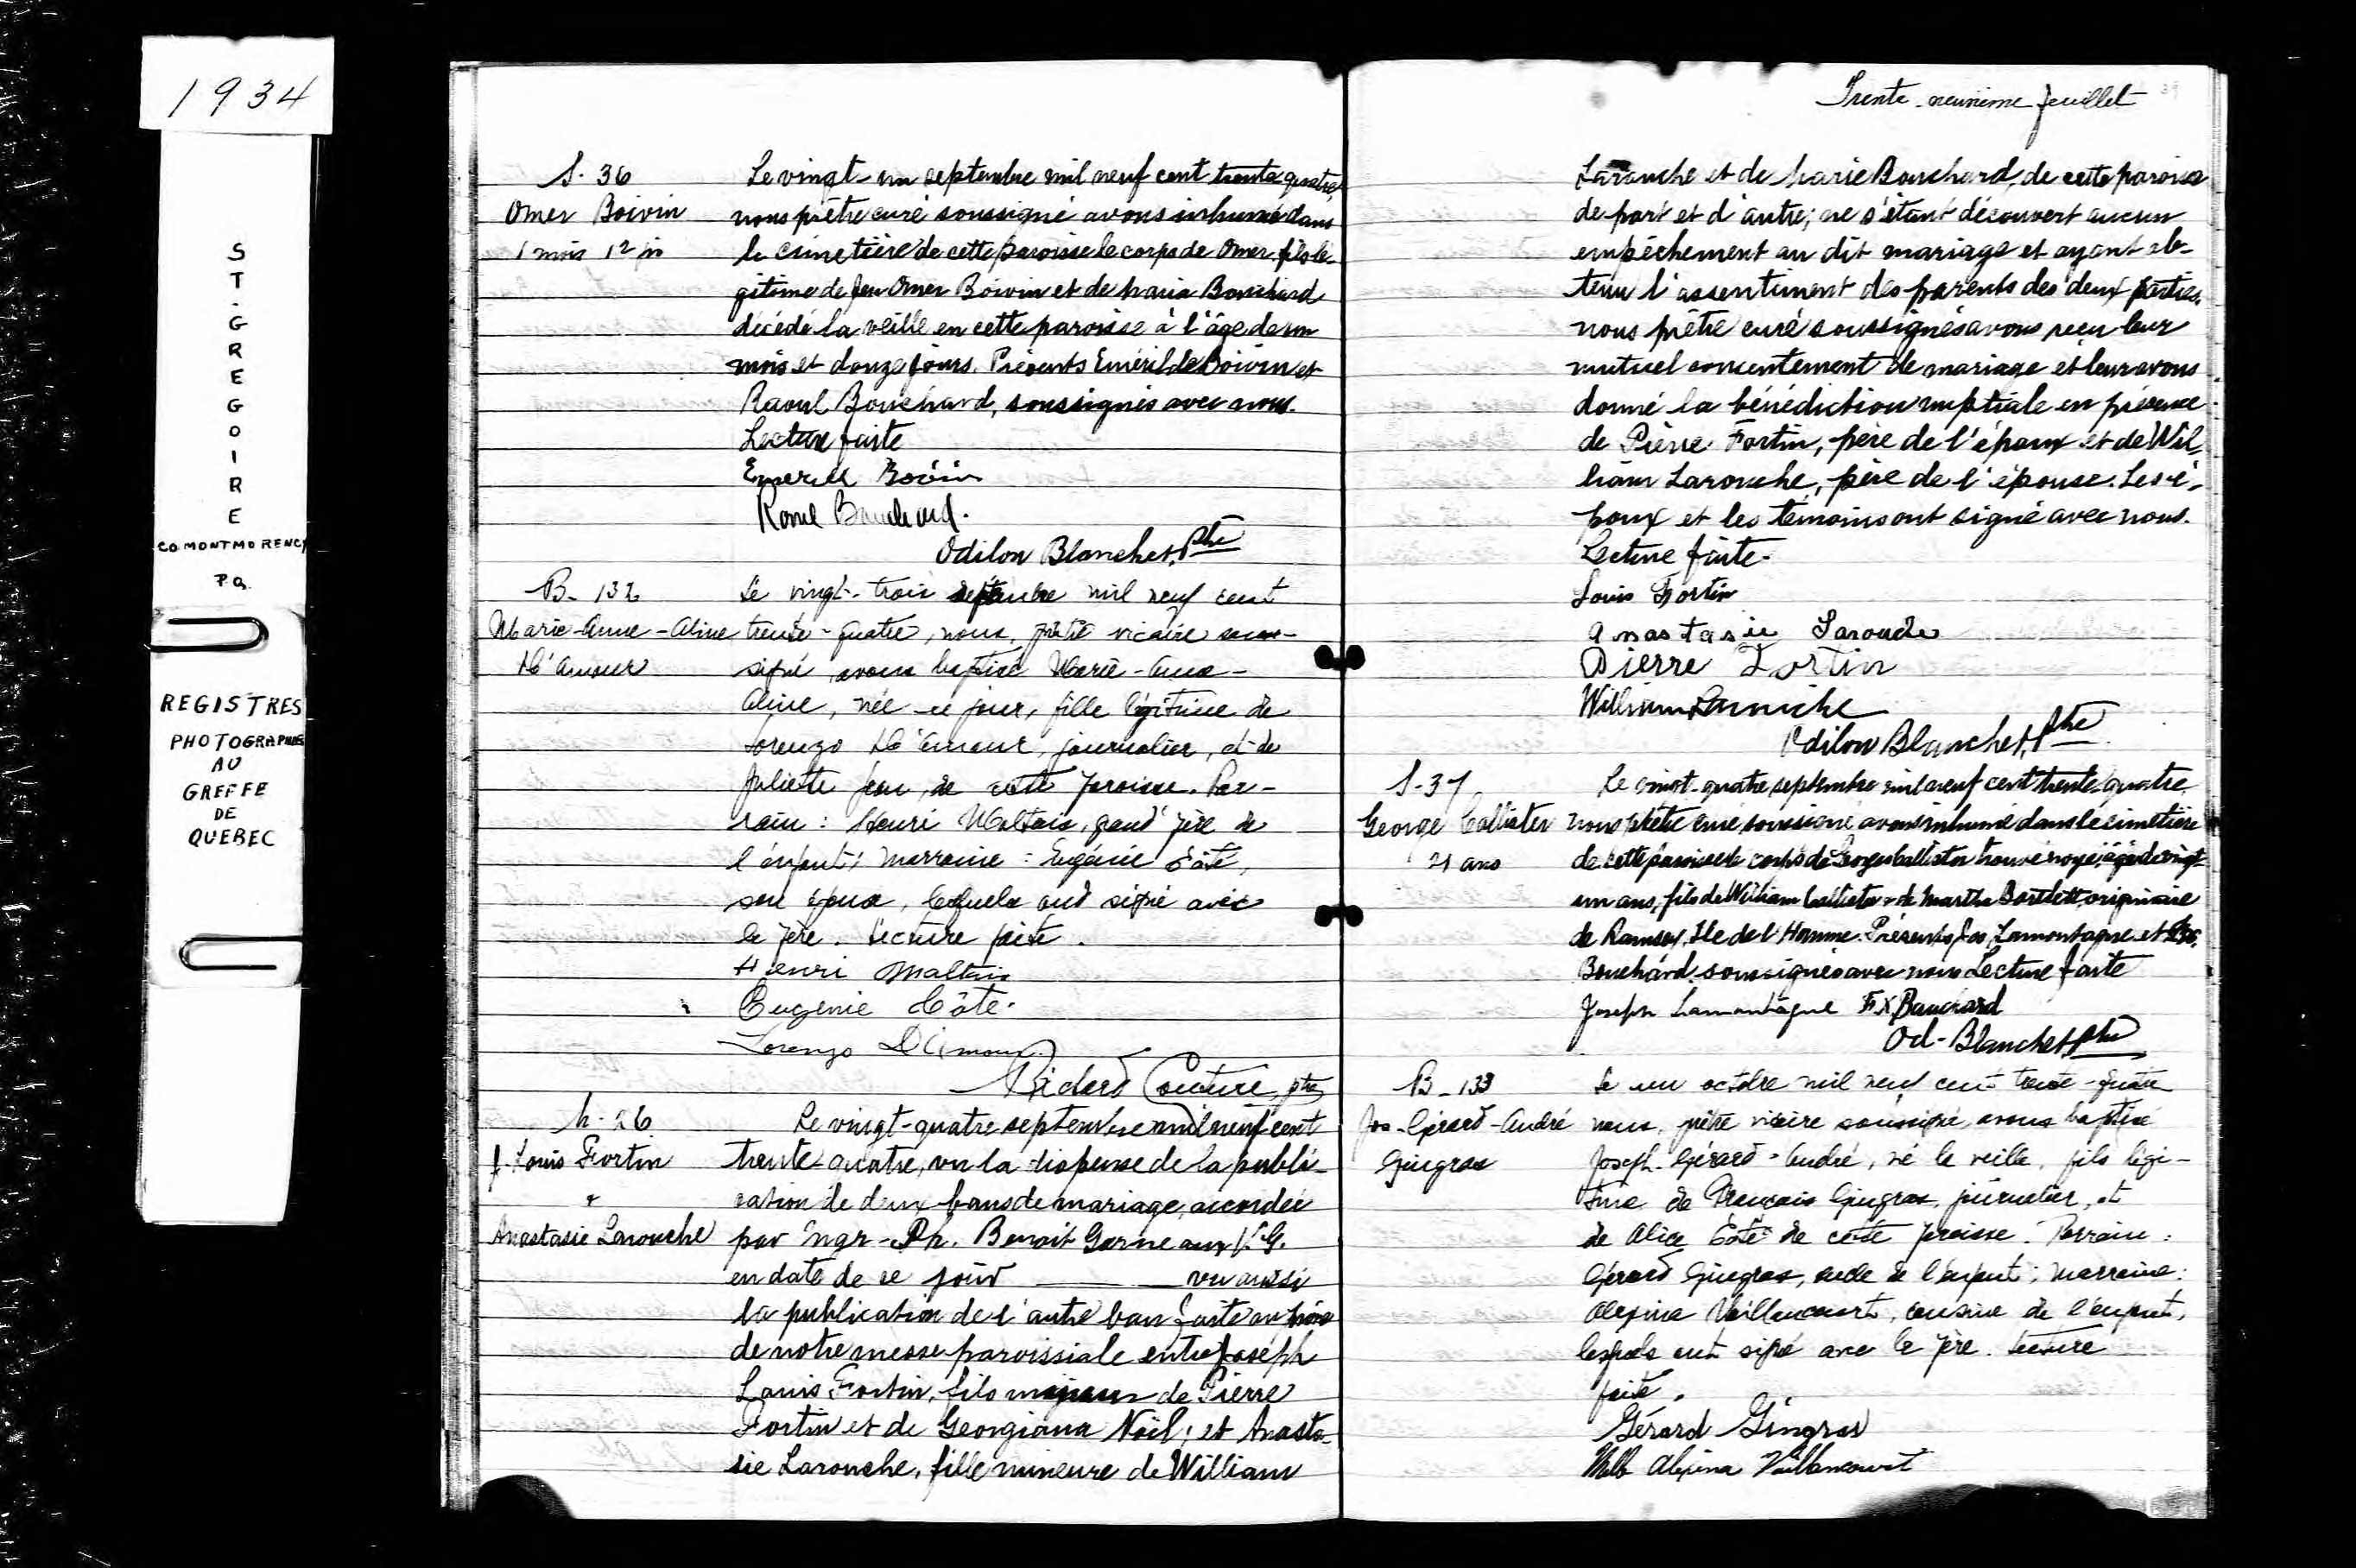 1934
ST-GREGOIRE
CO MONTMORENCY
P.Q.
REGISTRES
PHOTOGRAPHIES
AU
GREFFE
DE
QUEBEC
S. 36
Omer Boivin
1 mois 12 jrs
Le vingt-un septembre mil neuf cent trente quatre
nous prêtre curé soussigné avons inhumé dans
le cimetière de cette paroisse le corps de Omer, fils lé-
gitime de feu Omer Boivin et de Maria Bouchard
décédé la veille en cette paroisse à l'âge de un
mois et douze jours. Présents Emérilde Boivin et
Raoul Bouchard, soussignés avec nous.
Lecture faite
Emerild Boivin
Raoul Bouchard.
Odilon Blanchet, Ptre
B- 132
Marie-Anne-Aline
D'Amour
Le vingt-trois septembre mil neuf cent
trente-quatre, nous, prêtre vicaire sous-
signé, avons baptisé Marie-Anne-
Aline, née ce jour, fille légitime de
Lorenzo D'Amour, journalier, et de
Juliette Jean, de cette paroisse. Par-
rain: Henri Maltais, grand'père de
l'enfant; marraine: Eugénie Côté,
son épouse, lesquels ont signé avec
le père. Lecture faite.
Henri Maltais
Eugenie Côté.
Lorenzo D'Amour
Couture, ptre
M- 26
J. Louis Fortin
&
Anastasie Larouche
Le vingt-quatre septembre mil neuf cent
trente-quatre, vu la dispense de la publi-
cation de deux bans de mariage, accordée
par Mgr- Ph. Benoit Garneau V.G.
en date de ce jour vu aussi
la publication de l'autre ban faite au prône
de notre messe paroissiale entre Joseph
Louis Fortin, fils majeur de Pierre
Fortin et de Georgiana Noël; et Anasta-
sie Larouche, fille mineure de William
Trente-neuvième feuillet
39
Larouche et de Marie Bouchard, de cette paroisse
de part et d'autre; ne s'étant découvert aucun
empêchement au dit mariage et ayant ob-
tenu l'assentiment des parents des deux parties,
nous prêtre curé soussignés avons reçu leur
mutuel consentement de mariage et leur avons
donné la bénédiction nuptiale en présence
de Pierre Fortin, père de l'époux et de Wil-
liam Larouche, père de l'épouse. Les é-
poux et les témoins ont signé avec nous.
Lecture faite.
Louis Fortin
Anastasie Larouche
Pierre Fortin
William Larouche
Odilon Blanchet, Ptre
S-37
George Callister
21 ans
Le vingt-quatre septembre mil neuf cent trente-quatre
nous prêtre curé soussigné avons inhumé dans le cimetière
de cette paroisse le corps de George Callister trouvé noyé, âgé de vingt-
un ans, fils de William Callister & de Martha Bartlett, originaire
de Ramsey, Ile de l'Homme. Présents Jos. Lamontagne et
Bouchard, soussignés avec nous Lecture faite
Joseph Lamontagne F X Bouchard
Od- Blanchet ptre
B-133
Jos-Gérard-André
Gingras
Le un octobre mil neuf cent trente-quatre
nous, prêtre vicaire soussigné, avons baptisé
Joseph-Gérard-André, né la veille, fils légi-
time de François Gingras, journalier, et
de Alice Côté de cette paroisse. Parrain:
Gérard Gingras, oncle de l'enfant; marraine:
Alexina Vaillancourt, cousine de l'enfant,
lesquels ont signé avec le père. Lecture
faite.
Gérard Gingras
Mlle Alexina Vaillancourt